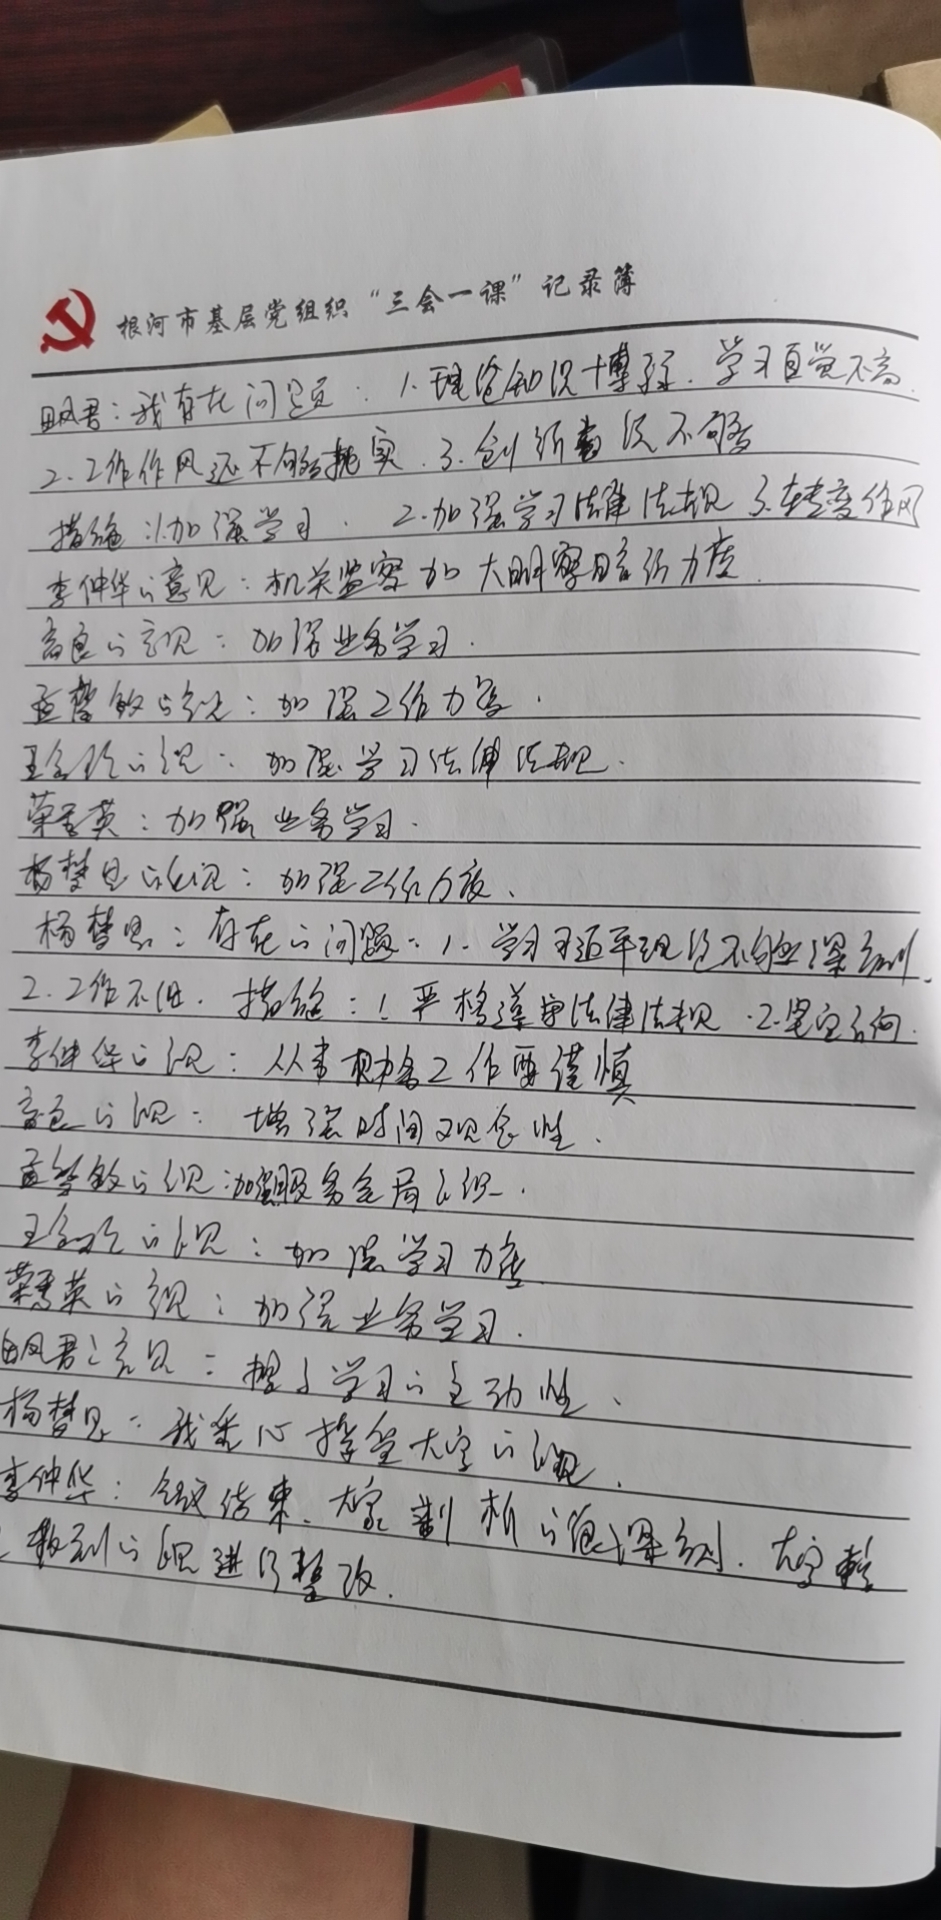 根河市基层党组织“三会一课”记录簿
田凤君：我存在问题：1.理论知识薄弱.学习自觉不高.
2.工作作风还不够扎实.3.创新意识不够
措施：1.加强学习. 2.加强学习法律法规 3.转变作风
李仲华的意见：机关监察加大明察暗访力度.
高良的意见：加强业务学习.
孟梦敏的意见：加强工作力度.
王的意见：加强学习法律法规.
荣秀英：加强业务学习.
杨梦思的意见：加强工作力度.
杨梦思：存在的问题：1.学习习近平理论不够深刻.
2.工作不. 措施：1.严格遵守法律法规.2.
李仲华的意见：从事财务工作要谨慎
高良的意见：增强时间观念性.
孟梦敏的意见：加强服务全局意识.
王的意见：加强学习力度.
荣秀英的意见：加强业务学习.
田凤君意见：提高学习的主动性.
杨梦思：我虚心接受大家的意见.
李仲华：会议结束.大家剖析的很深刻.大家
的意见进行整改.